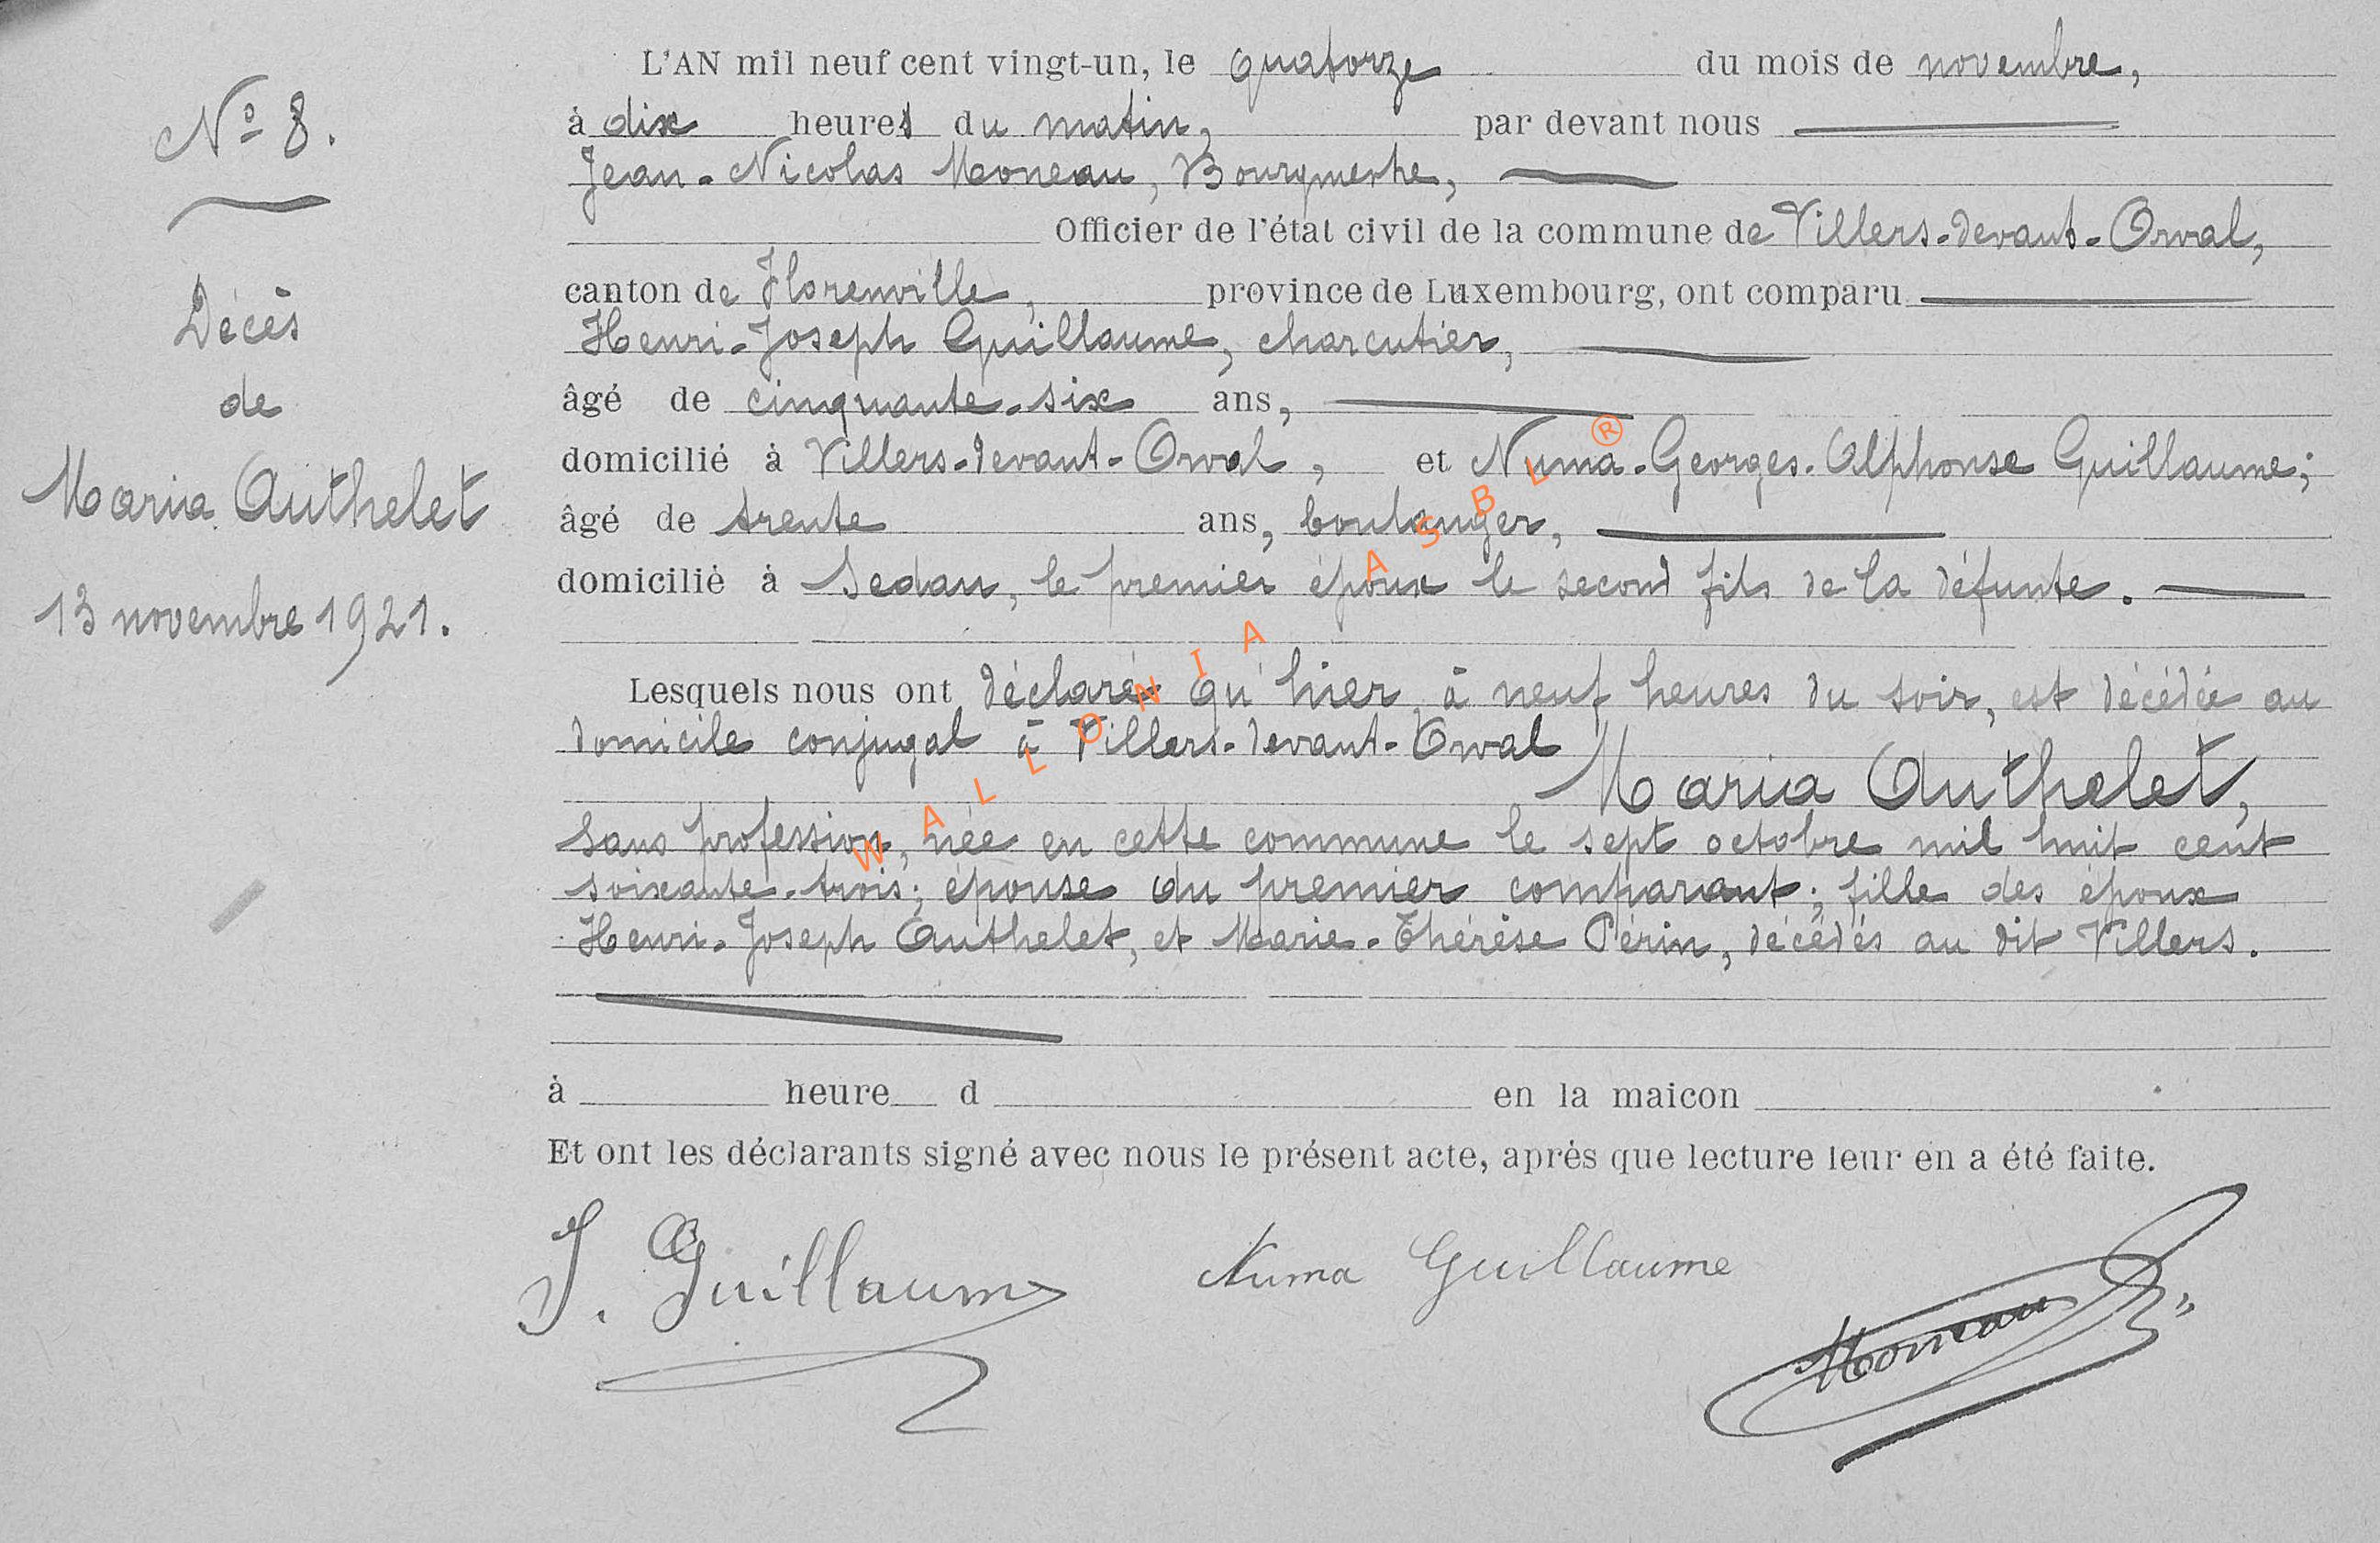 N° 8.
Décès
de
Maria Authelet
13 novembre 1921.
L'AN mil neuf cent vingt-un, le quatorze du mois de novembre,
à dix heures du matin, par devant nous
Jean-Nicolas Moneau, Bourgmestre,
Officier de l'état civil de la commune de Villers-devant-Orval,
canton de Florenville, province de Luxembourg, ont comparu
Henri-Joseph Guillaume, charcutier,
âgé de cinquante-six ans,
domicilié à Villers-devant-Orval, et Numa-Georges-Alphonse Guillaume;
âgé de trente ans, boulanger,
domicilié à Sedan, le premier époux le second fils de la défunte.
Lesquels nous ont déclaré qu'hier, à neuf heures du soir, est décédée au
domicile conjugal à Villers-devant-Orval
Maria Authelet,
sans profession, née en cette commune le sept octobre mil huit cent
soixante-trois; épouse du premier comparant; fille des époux
Henri-Joseph Authelet, et Marie-Thérèse Périn, décédés au dit Villers.
à heure d en la maicon
Et ont les déclarants signé avec nous le présent acte, après que lecture leur en a été faite.
J. Guillaume Numa Guillaume
Moneau
WALLONIA ASBL ®